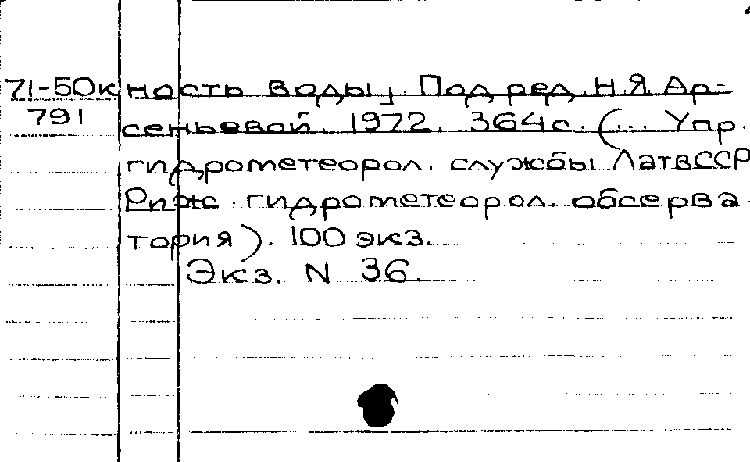 71-50к ность воды, Под ред. Н.Я. Ар-
791 сеньевой. 1972. 364с. (... Упр.
гидрометеорол. службы ЛатвССР
Рижс. гидрометеорол. обсерва
тория). 100 экз.
Экз. N 36.